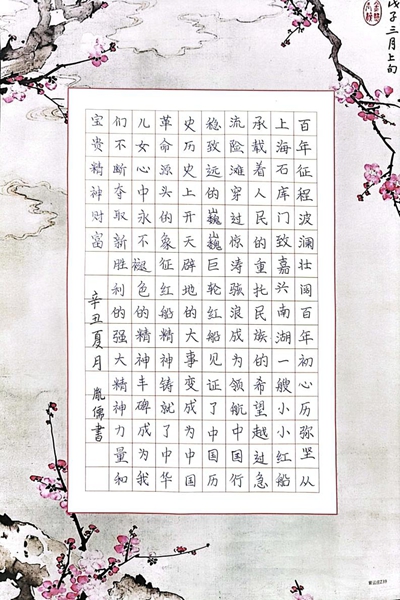 百年征程波澜壮阔百年初心历弥坚从
上海石库门致嘉兴南湖一艘小小红船
承载着人民的重托民族的希望越过急
流险滩穿过惊涛骇浪成为领航中国行
稳致远的巍巍巨轮红船见证了中国历
史历史上开天辟地的大事变成为中国
革命源头的象征红船精神铸就了中华
儿女心中永不褪色的精神丰碑成为我
们不断夺取新胜利的强大精神力量和
宝贵精神财富
辛丑夏月 胤儒書
戊子三月上旬